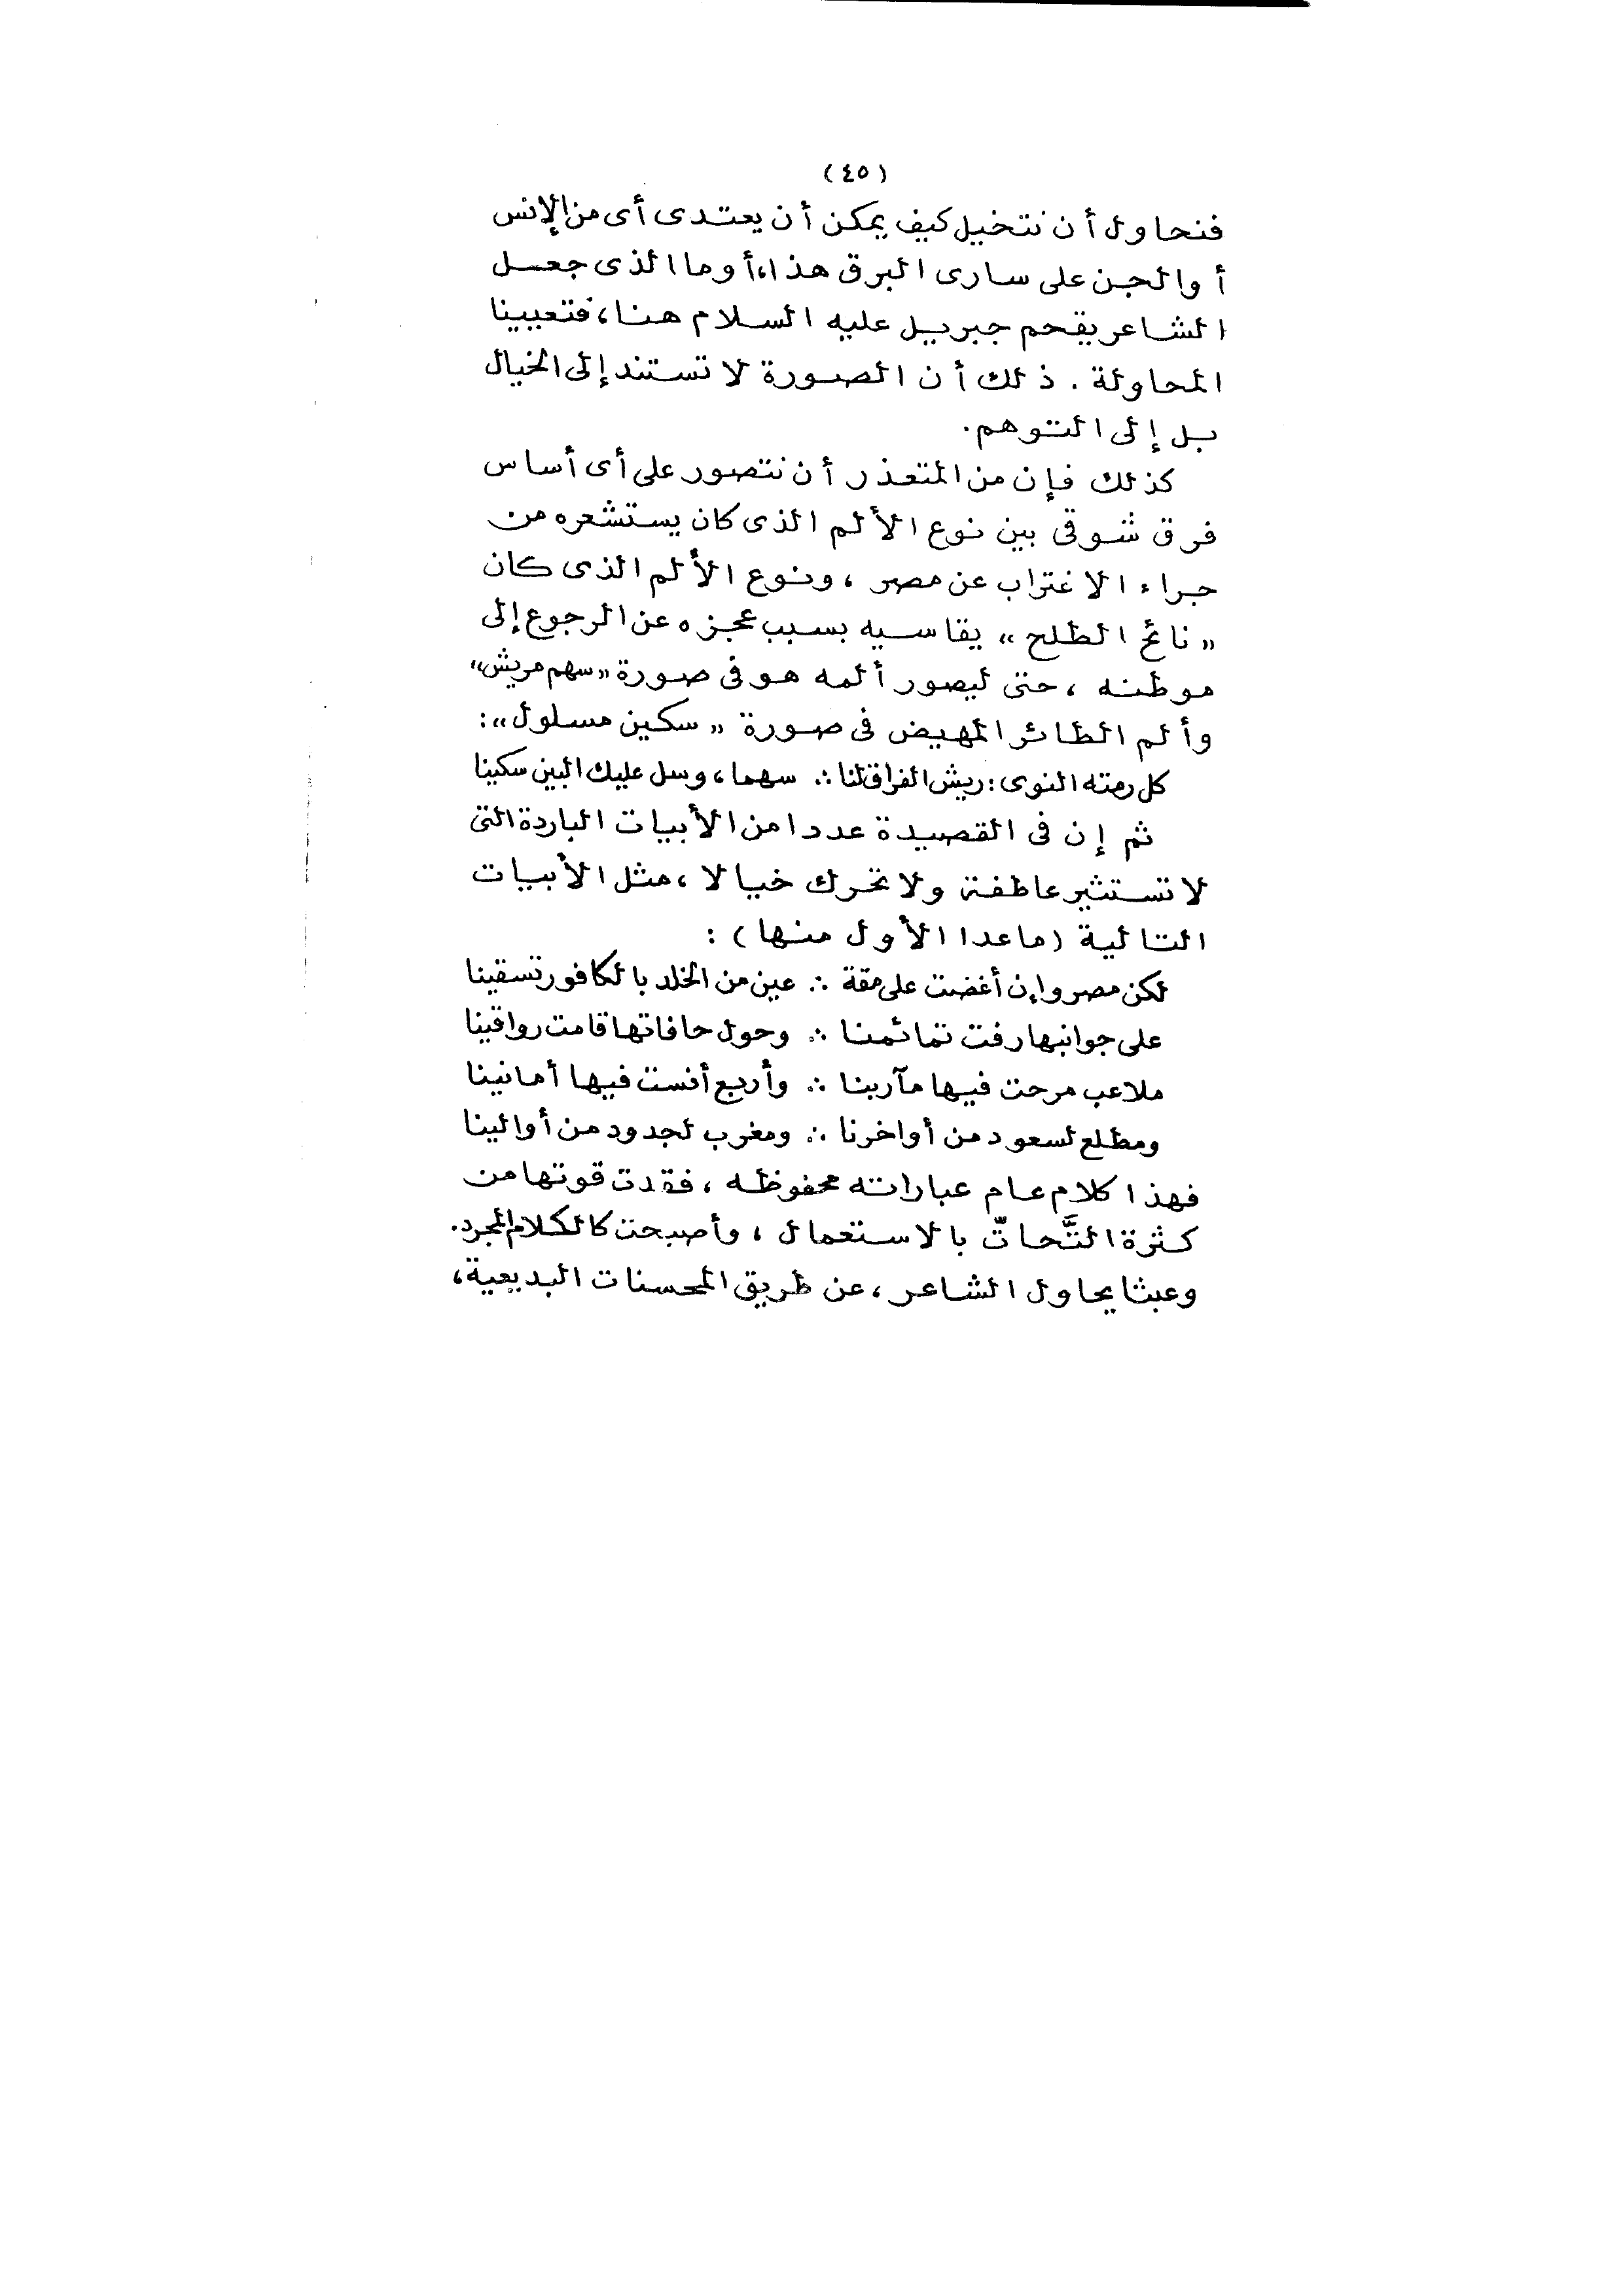 (٤٥)
فنحاول أن نتخيل كيف يمكن أن يعتدى أى من الإنس
أو الجن على سارى البرق هذا، أو ما الذى جعل
الشاعر يقحم جبريل عليه السلام هنا، فتعيينا
المحاولة. ذلك أن الصورة لا تستند إلى الخيال
بل إلى التوهم.
كذلك فإن من المتعذر أن نتصور على أى أساس
فرق شوقى بين نوع الألم الذى كان يستشعره من
جراء الاغتراب عن مصر، ونوع الألم الذى كان
«نائح الطلح» يقاسيه بسبب عجزه عن الرجوع إلى
موطنه، حتى ليصور ألمه هو فى صورة «سهم مريش»
وألم الطائر المهيض فى صورة «سكين مسلول»:
كل رمته النوى: ريش الفراق لنا ∴ سهما، وسل عليك البين سكينا
ثم إن فى القصيدة عددا من الأبيات الباردة التى
لا تستثير عاطفة ولا تحرك خيالا، مثل الأبيات
التالية (ماعدا الأول منها):
لكن مصر وإن أغضت على مقة ∴ عين من الخلد بالكافور تسقينا
على جوانبها رفت تمائمنا ∴ وحول حافاتها قامت رواقينا
ملاعب مرحت فيها مآربنا ∴ وأربع أنست فيها أمانينا
ومطلع لسعود من أواخرنا ∴ ومغرب لجدود من أوالينا
فهذا كلام عام عباراته محفوظه، فقدت قوتها من
كثرة التَّحاتّ بالاستعمال، وأصبحت كالكلام المجرد.
وعبثا يحاول الشاعر، عن طريق المحسنات البديعية،